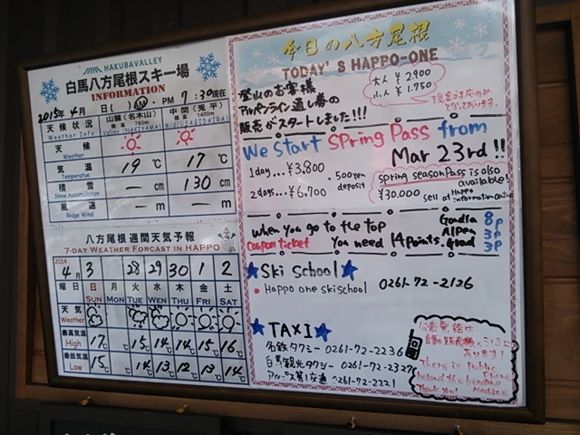 HAKUBAVALLEY
白馬八方尾根スキー場
INFORMATION
2015年4月 日( ) PM 7:30現在
天候状況
Weather Info
山麓(名木山)
標高 760m
Valley (NAKIYAMA)
中間(兎平)
標高 1400m
天候
Weather
気温 19℃ 17℃
Temperature
積雪 — 130 cm
Snow Accumulation
風速
Ridge Wind
八方尾根週間天気予報
7-DAY WEATHER FORCAST IN HAPPO
2014
4月 3 28 29 30 1 2
曜日 日 月 火 水 木 金 土
SUN MON TUE WED THU FRI SAT
天気
Weather
最高気温 17 15 14 14 15 16
High
最低気温 15 14 13 12 13 14
Low
今日の八方尾根
TODAY'S HAPPO-ONE
登山のお客様
アルペンライン通し券の
販売がスタートしました!!!
大人 ¥2,900
小人 ¥1,750
We start Spring Pass from
Mar 23rd!!
1day...¥3,800
2days...¥6,700
500yen
deposit
Spring season pass is also
available!
¥30,000
sell at Happo
information
When you go to the top
Coupon ticket You need 14 Points.
Gondla 8p
Alpen 3p
Quad 3p
★Ski School★
Happo one ski school 0261-72-2136
★TAXI★
名鉄タクシー 0261-72-2236
白馬観光タクシー 0261-72-2327
アルプス第1交通 0261-72-2221
公衆電話は
自動販売機のうらに
あります!
There is Public
Phone
behind the bending
Machine